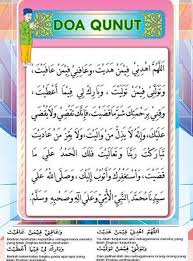 DOA QUNUT
اَللّٰهُمَّ اهْدِنِيْ فِيْمَنْ هَدَيْتَ، وَعَافِنِيْ فِيْمَنْ عَافَيْتَ،
وَتَوَلَّنِيْ فِيْمَنْ تَوَلَّيْتَ، وَبَارِكْ لِيْ فِيْمَا أَعْطَيْتَ،
وَقِنِيْ بِرَحْمَتِكَ شَرَّ مَا قَضَيْتَ، فَإِنَّكَ تَقْضِيْ وَلَا يُقْضٰى
عَلَيْكَ، وَإِنَّهُ لَا يَذِلُّ مَنْ وَالَيْتَ، وَلَا يَعِزُّ مَنْ عَادَيْتَ،
تَبَارَكْتَ رَبَّنَا وَتَعَالَيْتَ، فَلَكَ الْحَمْدُ عَلٰى مَا
قَضَيْتَ، أَسْتَغْفِرُكَ وَأَتُوْبُ إِلَيْكَ، وَصَلَّى اللهُ عَلٰى
سَيِّدِنَا مُحَمَّدٍ النَّبِيِّ الْأُمِّيِّ وَعَلٰى اٰلِهِ وَصَحْبِهِ وَسَلَّمَ
اَللّٰهُمَّ اهْدِنِيْ فِيْمَنْ هَدَيْتَ
وَعَافِنِيْ فِيْمَنْ عَافَيْتَ
وَتَوَلَّنِيْ فِيْمَنْ تَوَلَّيْتَ